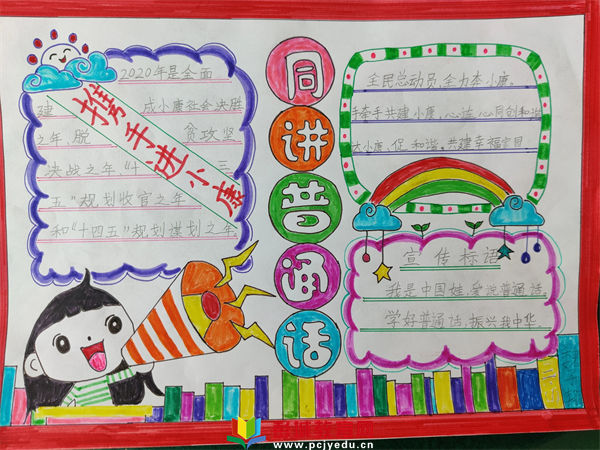 携手进小康
2020年是全面
建成小康社会决胜
之年,脱贫攻坚
决战之年,"十三
五"规划收官之年
和"十四五"规划谋划之年
同
讲
普
通
话
全民总动员,全力奔小康。
手牵手共建小康,心连心同创和谐
小康,促和谐,共建幸福家园
宣传标语
我是中国娃,爱说普通话,
学好普通话,振兴我中华
www.pcjyedu.cn